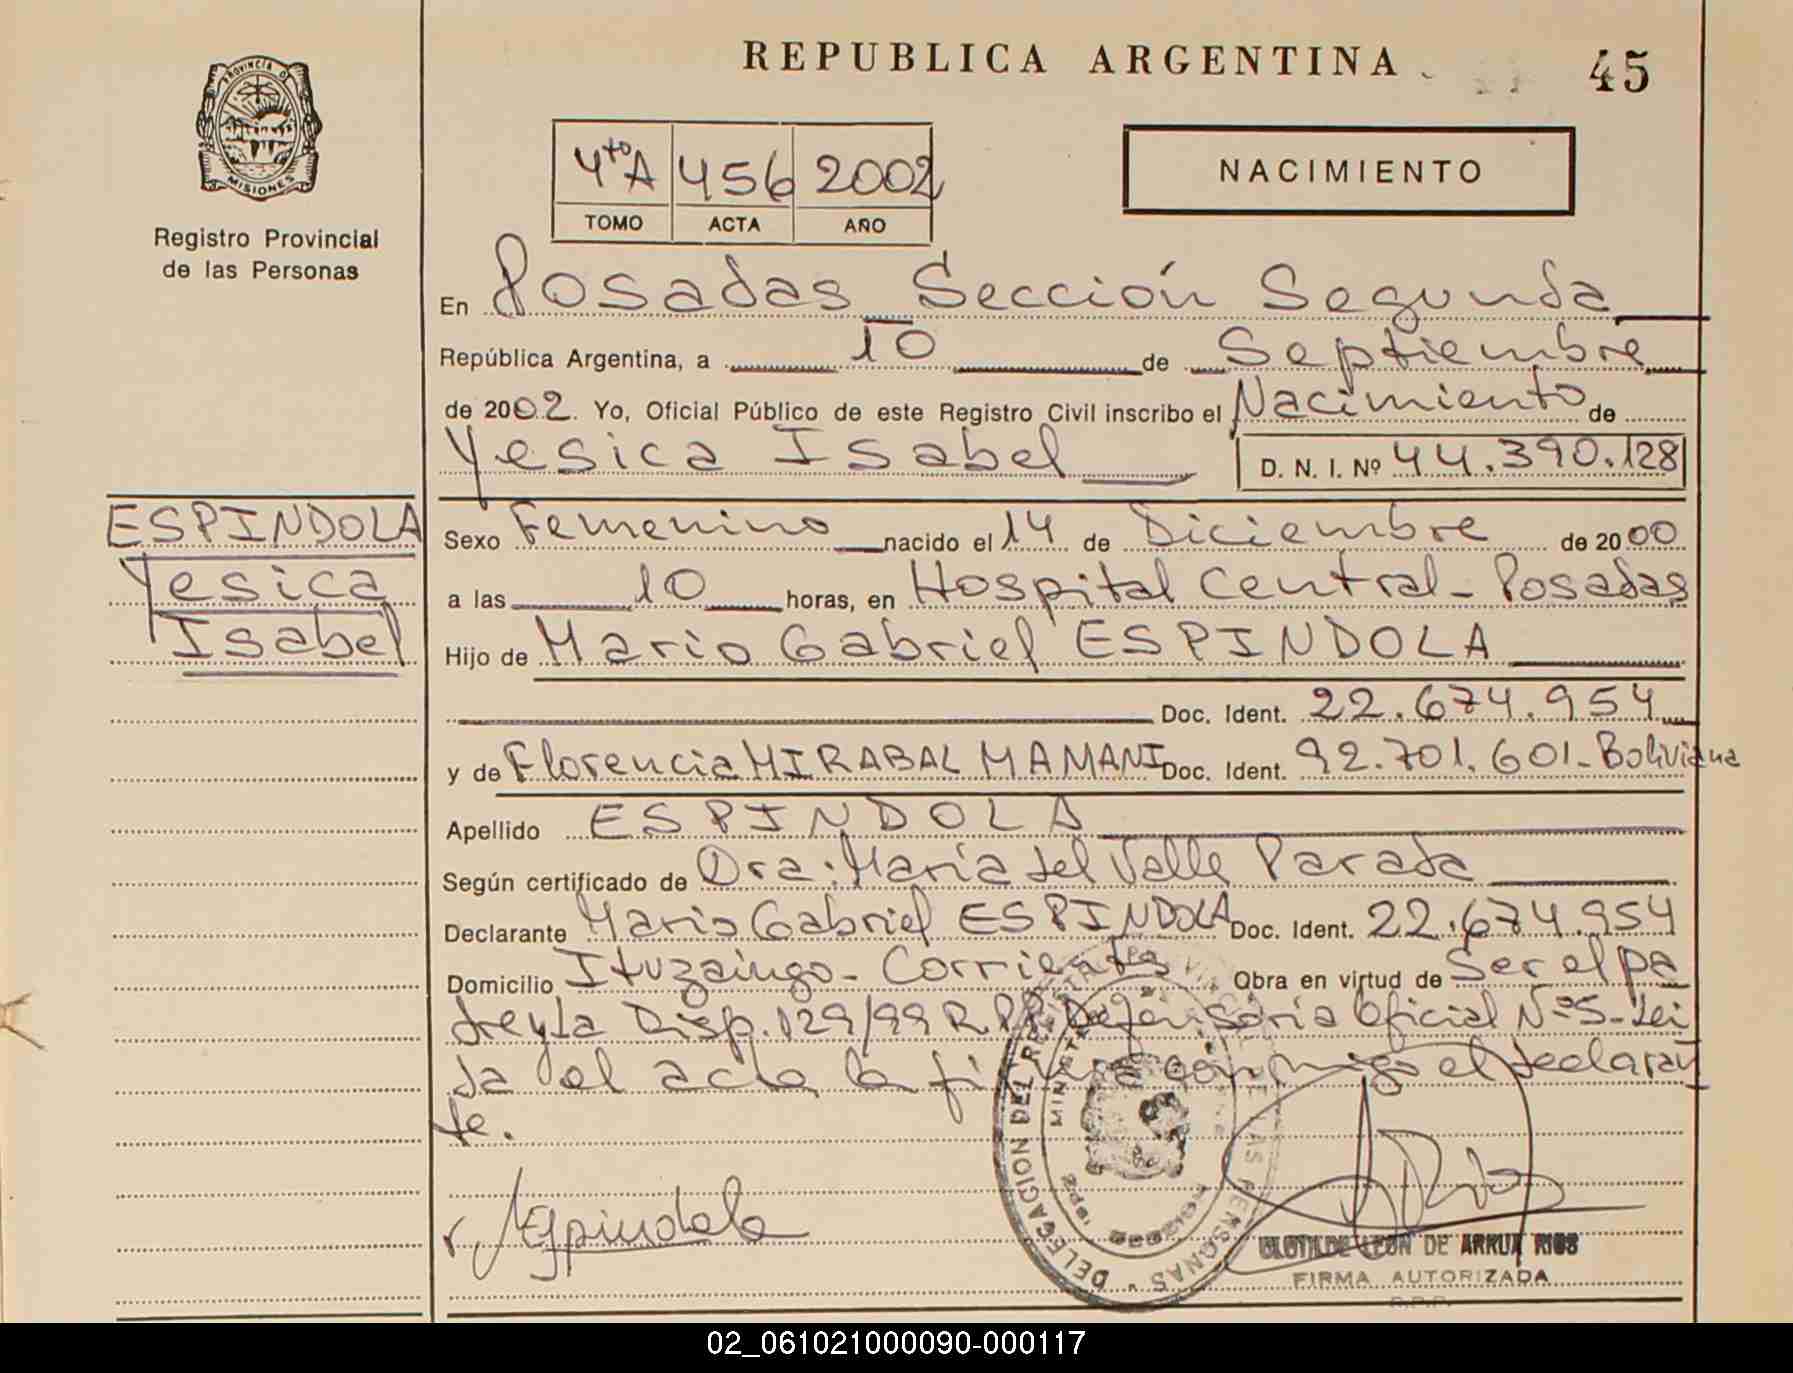 REPUBLICA ARGENTINA
45
PROVINCIA D
MISIONES
Registro Provincial
de las Personas
4toA 456 2002
TOMO ACTA AÑO
NACIMIENTO
En Posadas Sección Segunda
República Argentina, a 10 de Septiembre
de 2002. Yo, Oficial Público de este Registro Civil inscribo el Nacimiento de
Yesica Isabel D. N. I. Nº 44.390.128
ESPINDOLA
Yesica
Isabel
Sexo Femenino nacido el 14 de Diciembre de 2000
a las 10 horas, en Hospital Central - Posadas
Hijo de Mario Gabriel ESPINDOLA
Doc. Ident. 22.674.954
y de Florencia MIRABAL MAMANI Doc. Ident. 92.701.601 - Boliviana
Apellido ESPINDOLA
Según certificado de Dra. María del Valle Parada
Declarante Mario Gabriel ESPINDOLA Doc. Ident. 22.674.954
Domicilio Ituzaingo - Corrientes Obra en virtud de Ser el pa
dre y la Disp. 129/99 R.P.P. Defensoría Oficial Nº 5 - Lei
da el acta la firma conmigo el declaran
te.
Espindola
DELEGACION DEL PERSONAS
CLOTILDE LEON DE ARRUA RIOS
FIRMA AUTORIZADA
R.P.P.
02_061021000090-000117